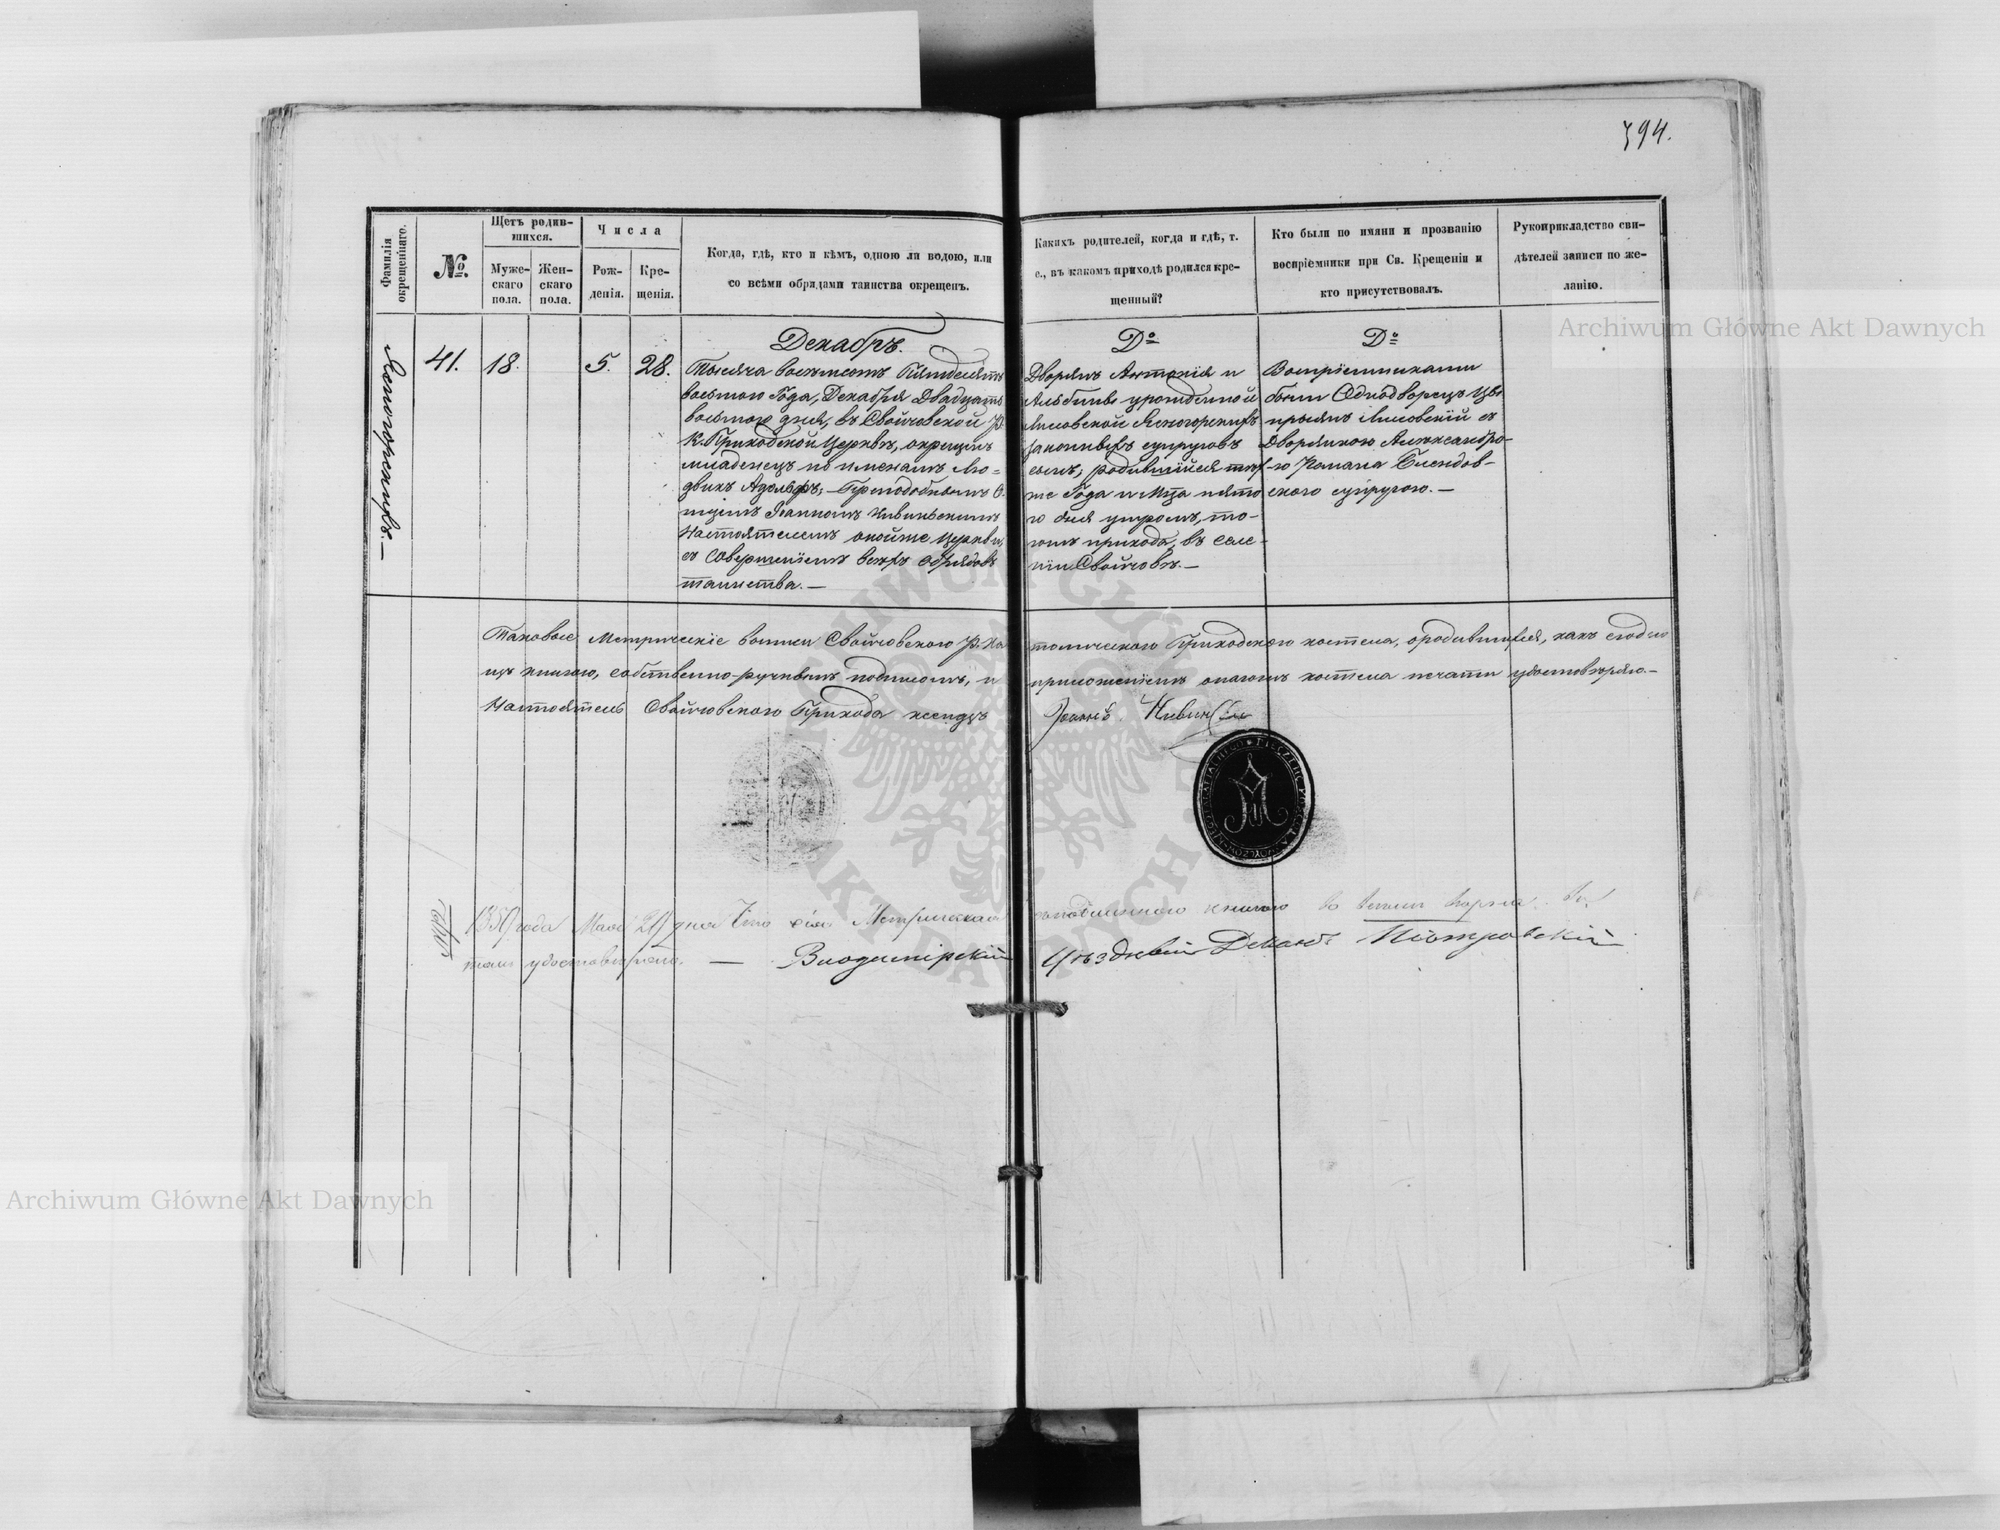 394.
Фамилія окрещеннаго.
№.
Щетъ родившихся.
Мужескаго пола.
Женскаго пола.
Числа
Рожденія.
Крещенія.
Когда, гдѣ, кто и кѣмъ, одною ли водою, или
со всѣми обрядами таинства окрещенъ.
Какихъ родителей, когда и гдѣ, т.
е., въ какомъ приходѣ родился кре-
щенный?
Кто были по имяни и прозванію
воспріемники при Св. Крещеніи и
кто присутствовалъ.
Рукоприкладство сви-
дѣтелей записи по же-
ланію.
Ясногорскихъ.—
41.
18.
5.
28.
Декабрь.
Тысяча восемьсотъ Пятдесятъ
восьмого Года, Декабря Двадцать
восьмого дня, въ Свойчовской Р.
К. Приходской Церквѣ, окрещенъ
младенецъ по именамъ Лю-
двикъ Адольфъ;— Преподобнымъ О-
тцемъ Іоанномъ
Настоятелемъ онойже Церкви,
съ совершеніемъ всехъ обрядовъ
таинства.—
До
Дворянъ Антонія и
Альбины урожденной
Лисовской Ясногорскихъ
законныхъ супруговъ
сынъ; родившійся тог-
же Года и Мца пято
го дня утромъ, то-
гожъ прихода, въ селе-
ніи Свойчовѣ.—
До
Воспріемниками
были Однодворецъ Цы
пріянъ Лисовскій съ
Дворянкою Александро-
ю Романа Блендов-
ского супругою.—
Таковые Метрическіе Свойчовского Р. Ка
толического Приходского костела, ородившихся, какъ сходно
изъ книгою, собственно-ручнымъ подписомъ, и
приложеніемъ оногожъ костела печати удостовѣряю.—
Настоятель Свойчовского Прихода ксендзъ
Іоаннъ
года Мая дня Что сія Метрическая
съ подлинною книгою во всемъ вѣрна, въ
томъ удостовѣряю. — Владимірскій
Уѣздный Деканъ Піотровскій
Archiwum Główne Akt Dawnych
Archiwum Główne Akt Dawnych
ARCHIWUM GŁÓWNE AKT DAWNYCH